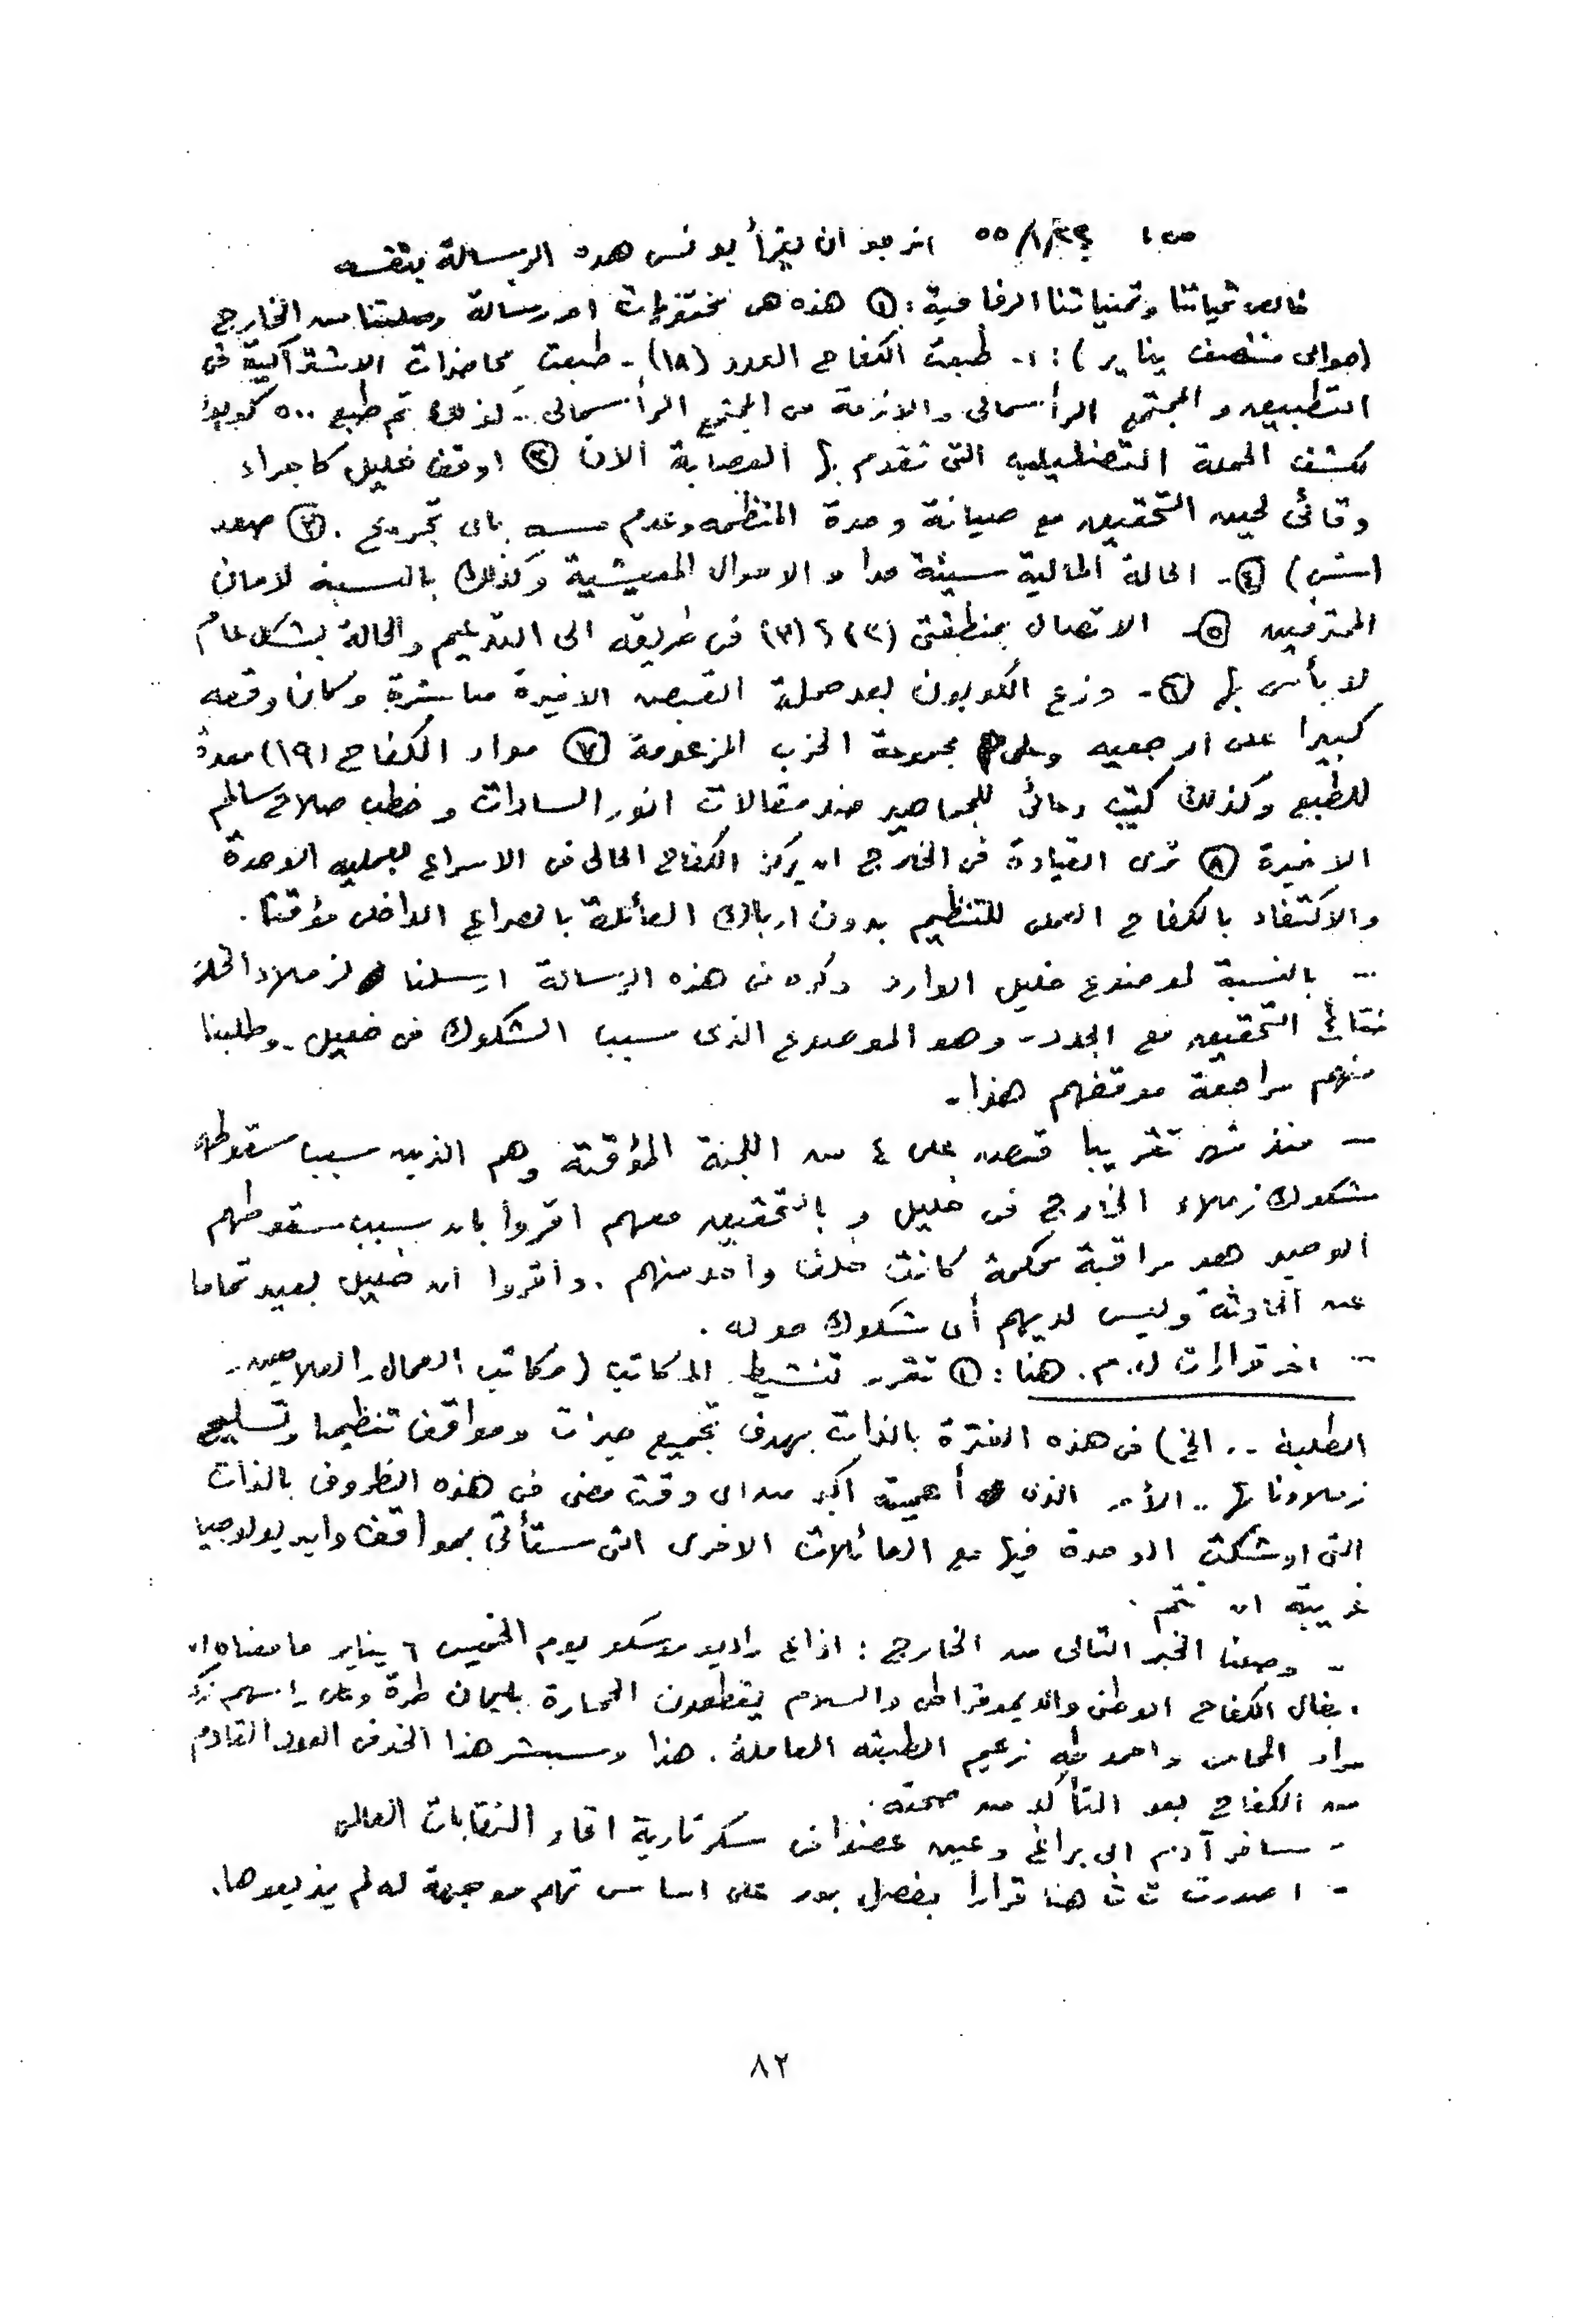 ص ١ ٥٥/١/٢٩ انرجو ان يقرأ يونس هده الرسالة بنفسه
خالص تحياتنا وتمنياتنا الرفاقية : ① هذه هى محتويات اخر رسالة وصلتنا من الخارج
(حوالى منتصف يناير ) : ١- طبعت الكفاح العدد (١٨) - طبعت محاضرات الاشتراكية فى
التطبيق و المجتمع الرأسمالى والازمة من المجتمع الرأسمالى .. كذلك تم طبع ٥٠٠ كوبون
كشف الحملة التضليليه التى تقوم بها العصابة الان ② اوقف خليل كاجراء
وقائى لحين التحقيق مع صيانة وحدة المنظمه وعدم مسه باى تجريح . ③
(ستس) ④ - الحالة المالية سيئة جدا و الاحوال المعيشية وكذلك بالنسبة لامان
المحترفين ⑤ - الاتصال بمنطقتى (٢) ؟ (٣) فى طريقه الى التدعيم والحالة بشكل عام
لا بأس بها ⑥ - وزع الكوبون بعد حملة القبض الاخيرة مباشرة وكان وقعه
كبيرا على الرجعيه وعلى مجموعة الحزب المزعومة ⑦ مواد الكفاح (١٩) معدة
للطبع وكذلك كتيب دعائى للجماهير ضد مقالات انور السادات و خطب صلاح سالم
الاخيرة ⑧ ترى القيادة فى الخارج ان يركز الكفاح الحالى فى الاسراع بعمليه الوحدة
والاكتفاء بالكفاح العملى للتنظيم بدون ارباك العائلة بالصراع الداخلى مؤقتا .
-- بالنسبة لموضوع خليل الوارد ذكره فى هذه الرسالة ارسلنا لزملاء الخارج
نتائج التحقيق مع الجدد - وهو الموضوع الذى سبب الشكوك فى خليل - وطلبنا
منهم مراجعة موقفهم هذا -
-- منذ شهر تقريبا قبض على ٤ من اللجنة المؤقتة وهم الذين سبب سقوطهم
شكوك زملاء الخارج فى خليل و بالتحقيق معهم اقروا بان سبب سقوطهم
الوحيد هو مراقبة محكمة كانت خلف واحد منهم . واقروا ان خليل بعيد تماما
عن الحادثة وليس لديهم أى شكوك حوله .
-- اخر قرارات ل. م. هنا : ① تقرر تنشيط المكاتب ( مكاتب العمال - الفلاحين -
الطلبة -- الخ ) فى هذه الفترة بالذات بهدف تجميع خبرات ومواقف تنظيمنا وتسليح
زملاءنا بها .. الأمر الذى أهميته اكبر من اى وقت مضى فى هذه الظروف بالذات
التى اوشكت الوحدة فيها مع العائلات الاخرى التى ستأتى بمواقف وايديولوجيا
غريبة ان تتم .
- وصلنا الخبر التالى من الخارج : اذاع راديو موسكو يوم الخميس ٦ يناير ما معناه ان
ابطال الكفاح الوطنى والديموقراطى والسلام يقطعون الحجارة بليمان طرة وعلى رأسهم زكى
مراد المحامى واحمد طه زعيم الطبقه العاملة . هذا وسينشر هذا الخبر فى العدد القادم
من الكفاح بعد التأكد من صحته .
- سافر آدم الى براغ وعين عضوا فى سكرتارية اتحاد النقابات العالمى
- اصدرت ت ث هنا قرارا بفصل بدر على اساس تهم موجهة له لم يذيعوها .
٨٢